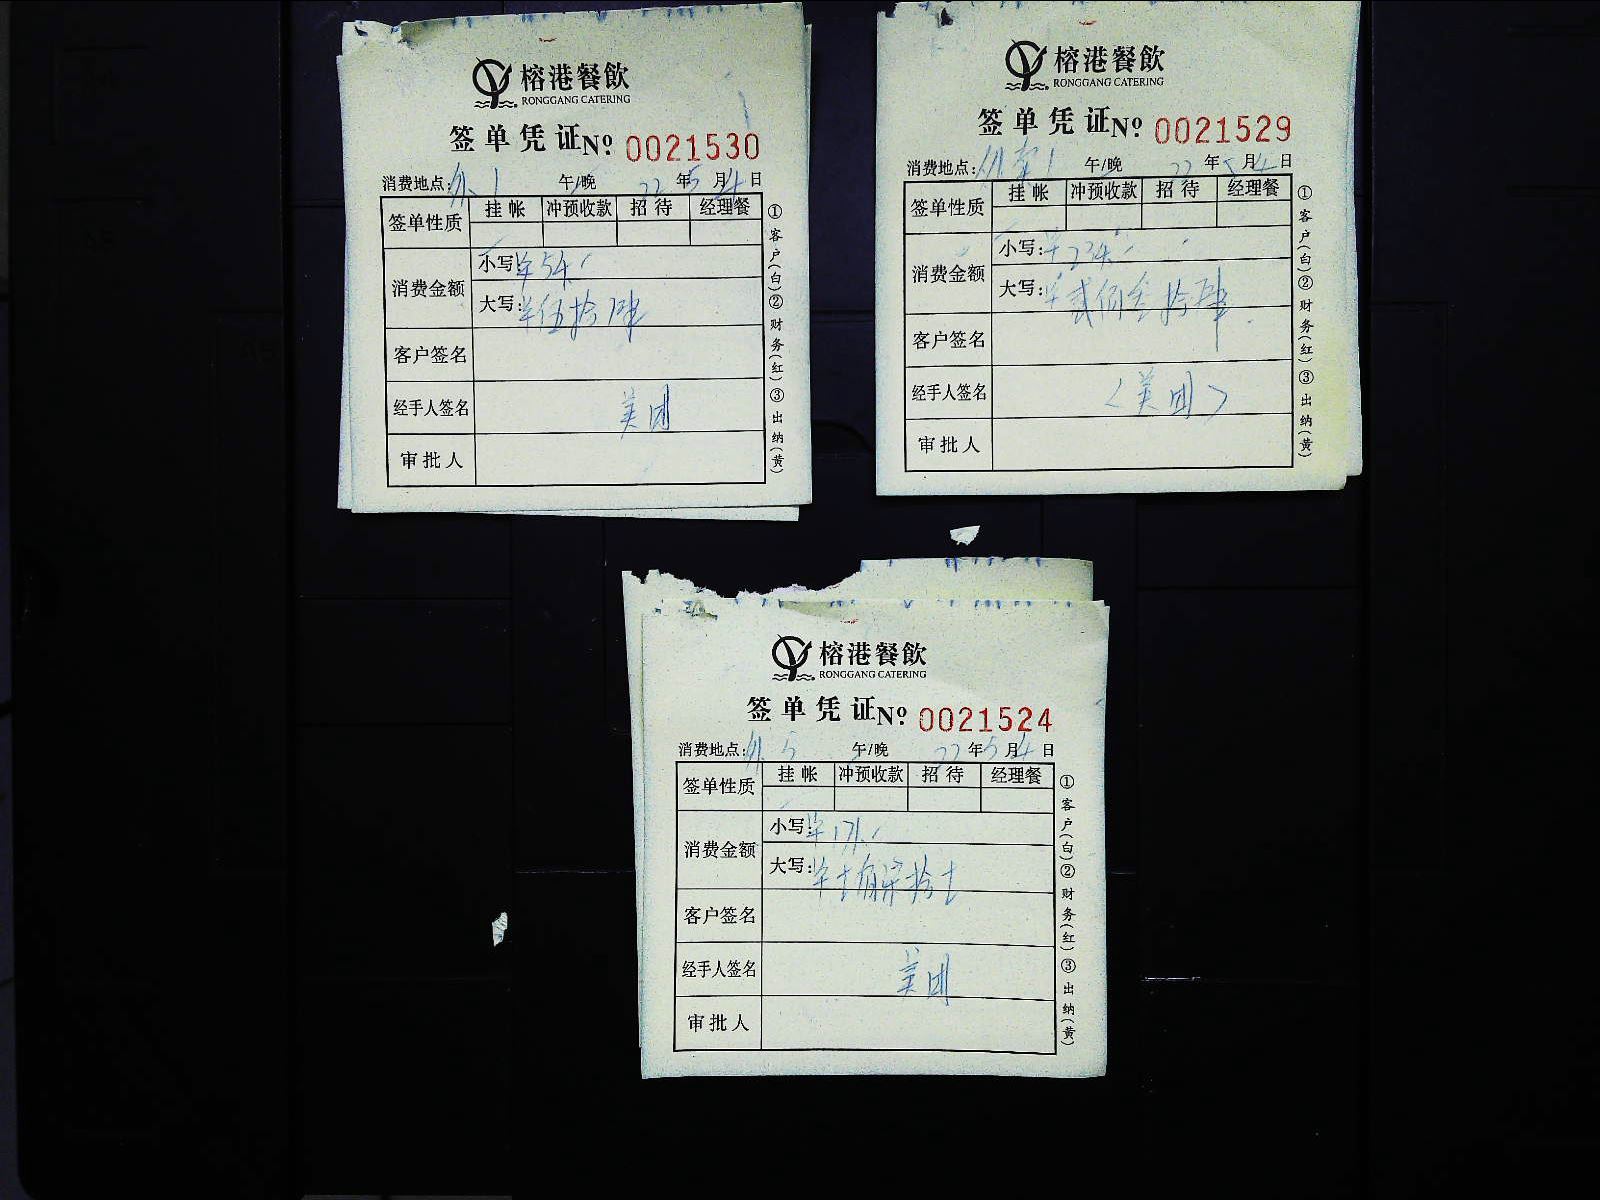 榕港餐飲
RONGGANG CATERING
签单凭证№ 0021530
消费地点:外.1 午/晚 22年5月4日
签单性质 挂帐 冲预收款 招待 经理餐
消费金额 小写:¥54
大写:¥伍拾肆
客户签名
经手人签名 美团
审批人
①客户(白)②财务(红)③出纳(黄)
榕港餐飲
RONGGANG CATERING
签单凭证№ 0021529
消费地点: 午/晚 22年5月4日
签单性质 挂帐 冲预收款 招待 经理餐
消费金额 小写:¥234
大写:¥贰佰叁拾肆
客户签名
经手人签名 <美团>
审批人
①客户(白)②财务(红)③出纳(黄)
榕港餐飲
RONGGANG CATERING
签单凭证№ 0021524
消费地点:外.5 午/晚 22年5月4日
签单性质 挂帐 冲预收款 招待 经理餐
消费金额 小写:
大写:
客户签名
经手人签名 美团
审批人
①客户(白)②财务(红)③出纳(黄)